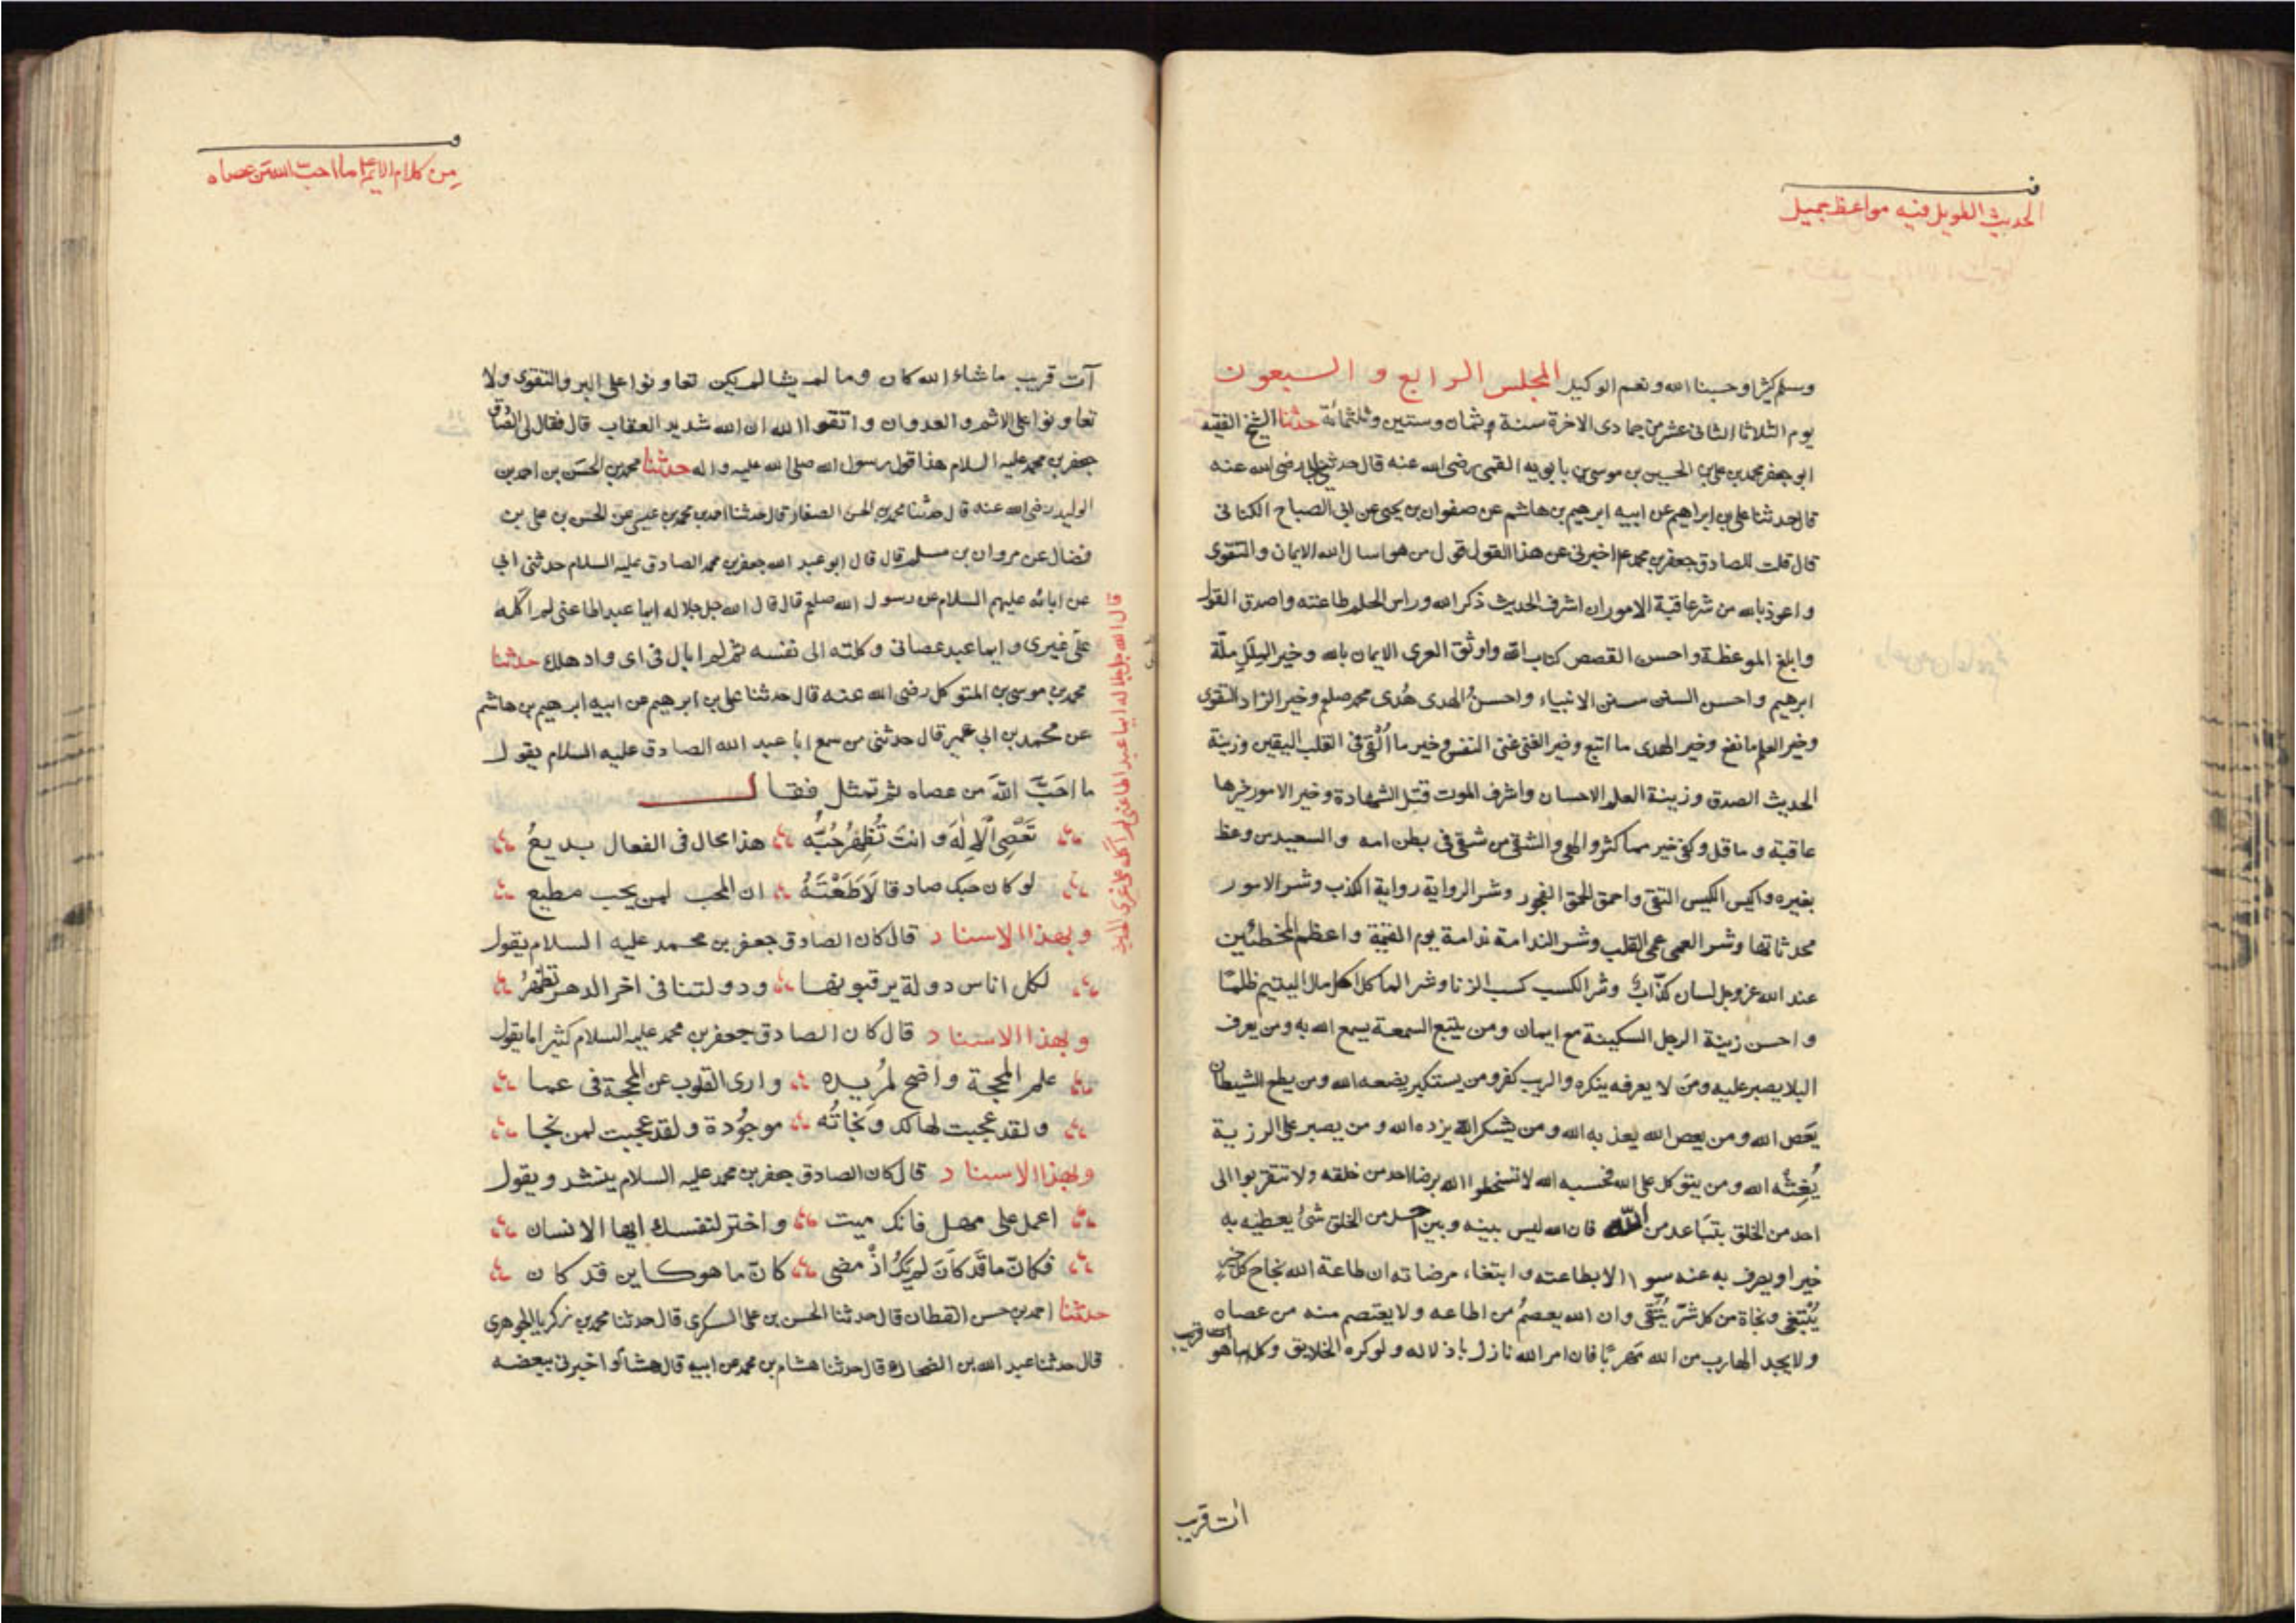 ف
الحديث الطويل فيه مواعظ جميل
وسلم كثيرا وحسبنا الله ونعم الوكيل المجلس الرابع و السبعون
يوم الثلاثا الثانى عشر من جمادى الاخرة سنة وثمان وستين وثلثمائة حدثنا الشيخ الفقيه
ابو جعفر محمد بن على بن الحسين بن موسى بن بابويه القمى رضى الله عنه قال حدثنى ابى رضى الله عنه
قال حدثنا على بن ابراهيم عن ابيه ابرهيم بن هاشم عن صفوان بن يحيى عن ابى الصباح الكنانى
قال قلت للصادق جعفر بن محمد ع اخبرنى عن هذا القول قول من هو اسال الله الايمان والتقوى
و اعوذ بالله من شر عاقبة الامور ان اشرف الحديث ذكر الله وراس الحلم طاعته واصدق القول
وابلغ الموعظة واحسن القصص كتاب الله واوثق العرى الايمان بالله وخير الملل ملة
ابرهيم واحسن السنن سنن الانبياء واحسن الهدى هُدى محمد صلم وخير الزاد التقوى
وخير العلم ما نفع وخير الهدى ما اتبع وخير الغنى غنى النفس وخير ما اُلقى فى القلب اليقين وزينة
الحديث الصدق وزينة العلم الاحسان واشرف الموت قتل الشهادة وخير الامور خيرها
عاقبة وما قل وكفى خير مما كثر والهى والشقى من شقى فى بطن امه والسعيد من وعظ
بغيره واكيس الكيس التقى واحمق الحمق الفجور وشر الرواية رواية الكذب وشر الامور
محدثاتها وشر العمى عمى القلب وشر الندامة ندامة يوم القيمة واعظم المخطئين
عند الله عز وجل لسان كذّاب وشر الكسب كسب الزنا وشر الماكل اكل مال اليتيم ظلمًا
واحسن زينة الرجل السكينة مع ايمان ومن يتبع السمعة يسمع الله به ومن يعرف
البلا يصبر عليه ومن لا يعرفه ينكره والريب كفر ومن يستكبر يضعه الله ومن يطع الشيطان
يعص الله ومن يعص الله يعذبه الله ومن يشكر الله يزده الله ومن يصبر على الرزية
يُغِثْه الله ومن يتوكل على الله فحسبه الله لا تسخطوا الله برضا احد من خلقه ولا تتقربوا الى
احد من الخلق بتباعد من الله فان الله ليس بينه وبين احد من الخلق شئ يعطيه به
خيرا او يصرف به عنه سوا الا بطاعته وابتغاء مرضاته ان طاعة الله نجاح كل خير
يُبْتَغى ونجاة من كل شرّ يُتّقى وان الله يعصمُ من اطاعه ولا يعتصم منه من عصاه
ولا يجد الهارب من الله مهربًا فان امر الله نازل باذلاله ولو كره الخلايق وكل ما هو
آت قريب
ات قريب
و
من كلام الا ما احب الله من عصاه
آت قريب ماشاء الله كان وما لم يشا لم يكن تعاونوا على البر والتقوى ولا
تعاونوا على الاثم والعدوان واتقوا الله ان الله شديد العقاب قال فقال لى الصادق
جعفر بن محمد عليه السلام هذا قول رسول الله صلى الله عليه واله حدثنا محمد بن الحسن بن احمد بن
الوليد رضى الله عنه قال حدثنا محمد بن الحسن الصفار قال حدثنا احمد بن محمد بن عيسى عن الحسن بن على بن
فضال عن مروان بن مسلم قال قال ابو عبد الله جعفر بن محمد الصادق عليه السلام حدثنى ابى
عن ابائه عليهم السلام عن رسول الله صلعم قال قال الله جل جلاله ايما عبد اطاعنى لم اكله
على غيرى وايما عبد عصانى وكلته الى نفسه ثم لم ابال فى اى واد هلك حدثنا
محمد بن موسى بن المتوكل رضى الله عنه قال حدثنا على بن ابرهيم عن ابيه ابرهيم بن هاشم
عن محمد بن ابى عمير قال حدثنى من سمع ابا عبد الله الصادق عليه السلام يقول
ما احَبَّ اللهَ من عصاه ثم تمثل فقال
تَعْصِى الْاِلٰهَ وانتَ تُظْهِرُ حُبَّهُ هذا محال فى الفعال بديعُ
لو كان حبك صادقا لَاَطَعْتَهُ ان المحب لمن يحب مطيع
وبهذا الاسناد قال كان الصادق جعفر بن محمد عليه السلام يقول
لكل اناس دولة يرقبونها ودولتنا فى اخر الدهر تظهرُ
وبهذا الاسناد قال كان الصادق جعفر بن محمد عليه السلام كثيرا ما يقول
علم المحجة واضح لمُريده وارى القلوب عن المحجة فى عما
ولقد عجبت لهالك ونجاتُه موجُودة ولقد عجبت لمن نجا
وبهذا الاسناد قال كان الصادق جعفر بن محمد عليه السلام ينشد ويقول
اعمل على مهل فانك ميت واختر لنفسك ايها الانسان
فكانّ ما قَد كانَ لم يَكُ اذْ مضى كانّ ما هو كاين قد كان
حدثنا احمد بن حسن القطان قال حدثنا الحسن بن على السكرى قال حدثنا محمد بن زكريا الجوهرى
قال حدثنا عبد الله بن الضحاك قال حدثنا هشام بن محمد عن ابيه قال هشام واخبرنى ببعضه
قال الله جل جلاله ايما عبد اطاعنى لم اكله على غيرى الحديث